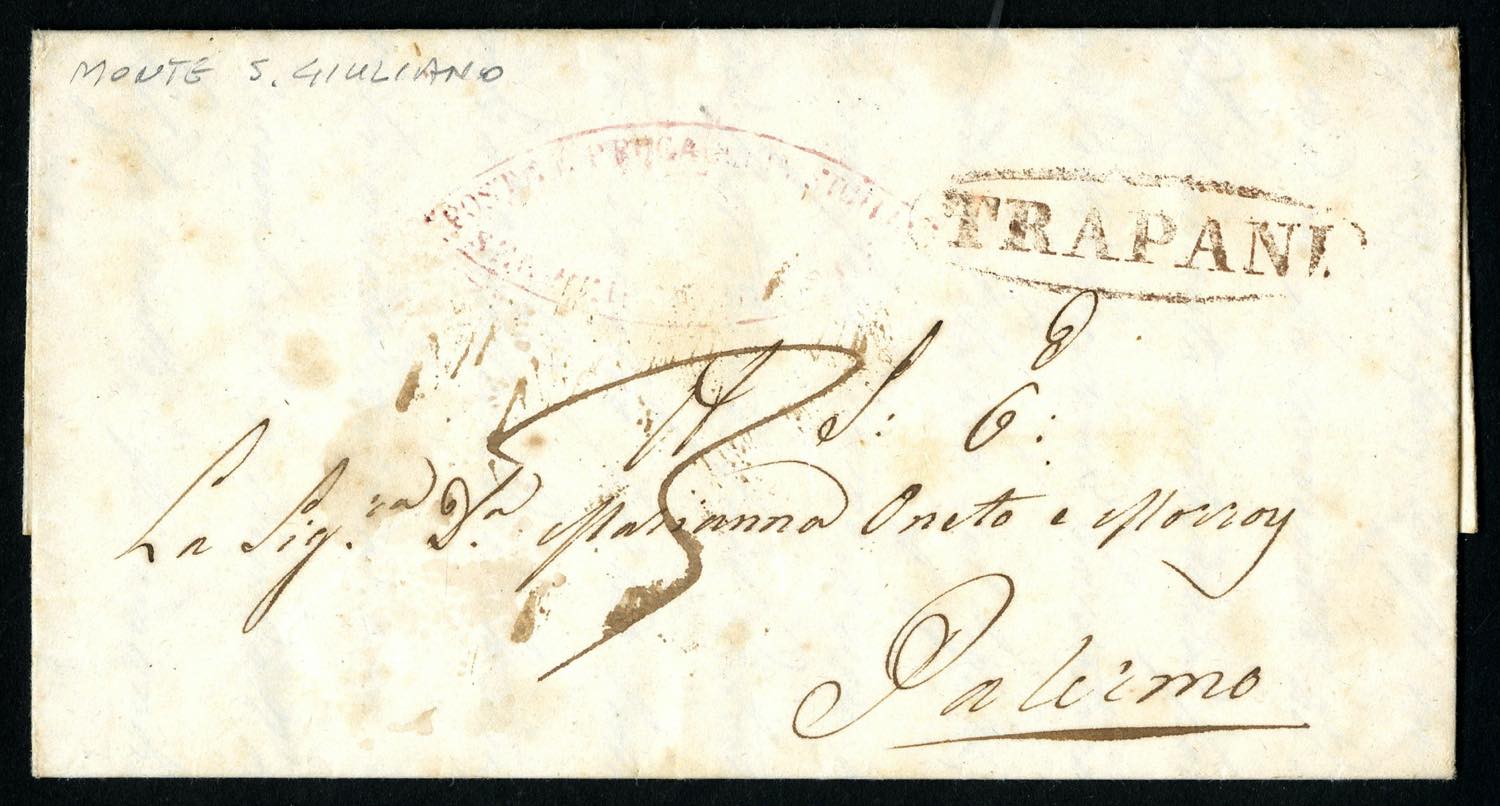 MONTE S. GIULIANO
POSTE E PROCACCI
TRAPANI.
A S: E:
La Sig.ra D.a Marianna Oneto e Morroy
3
Palermo